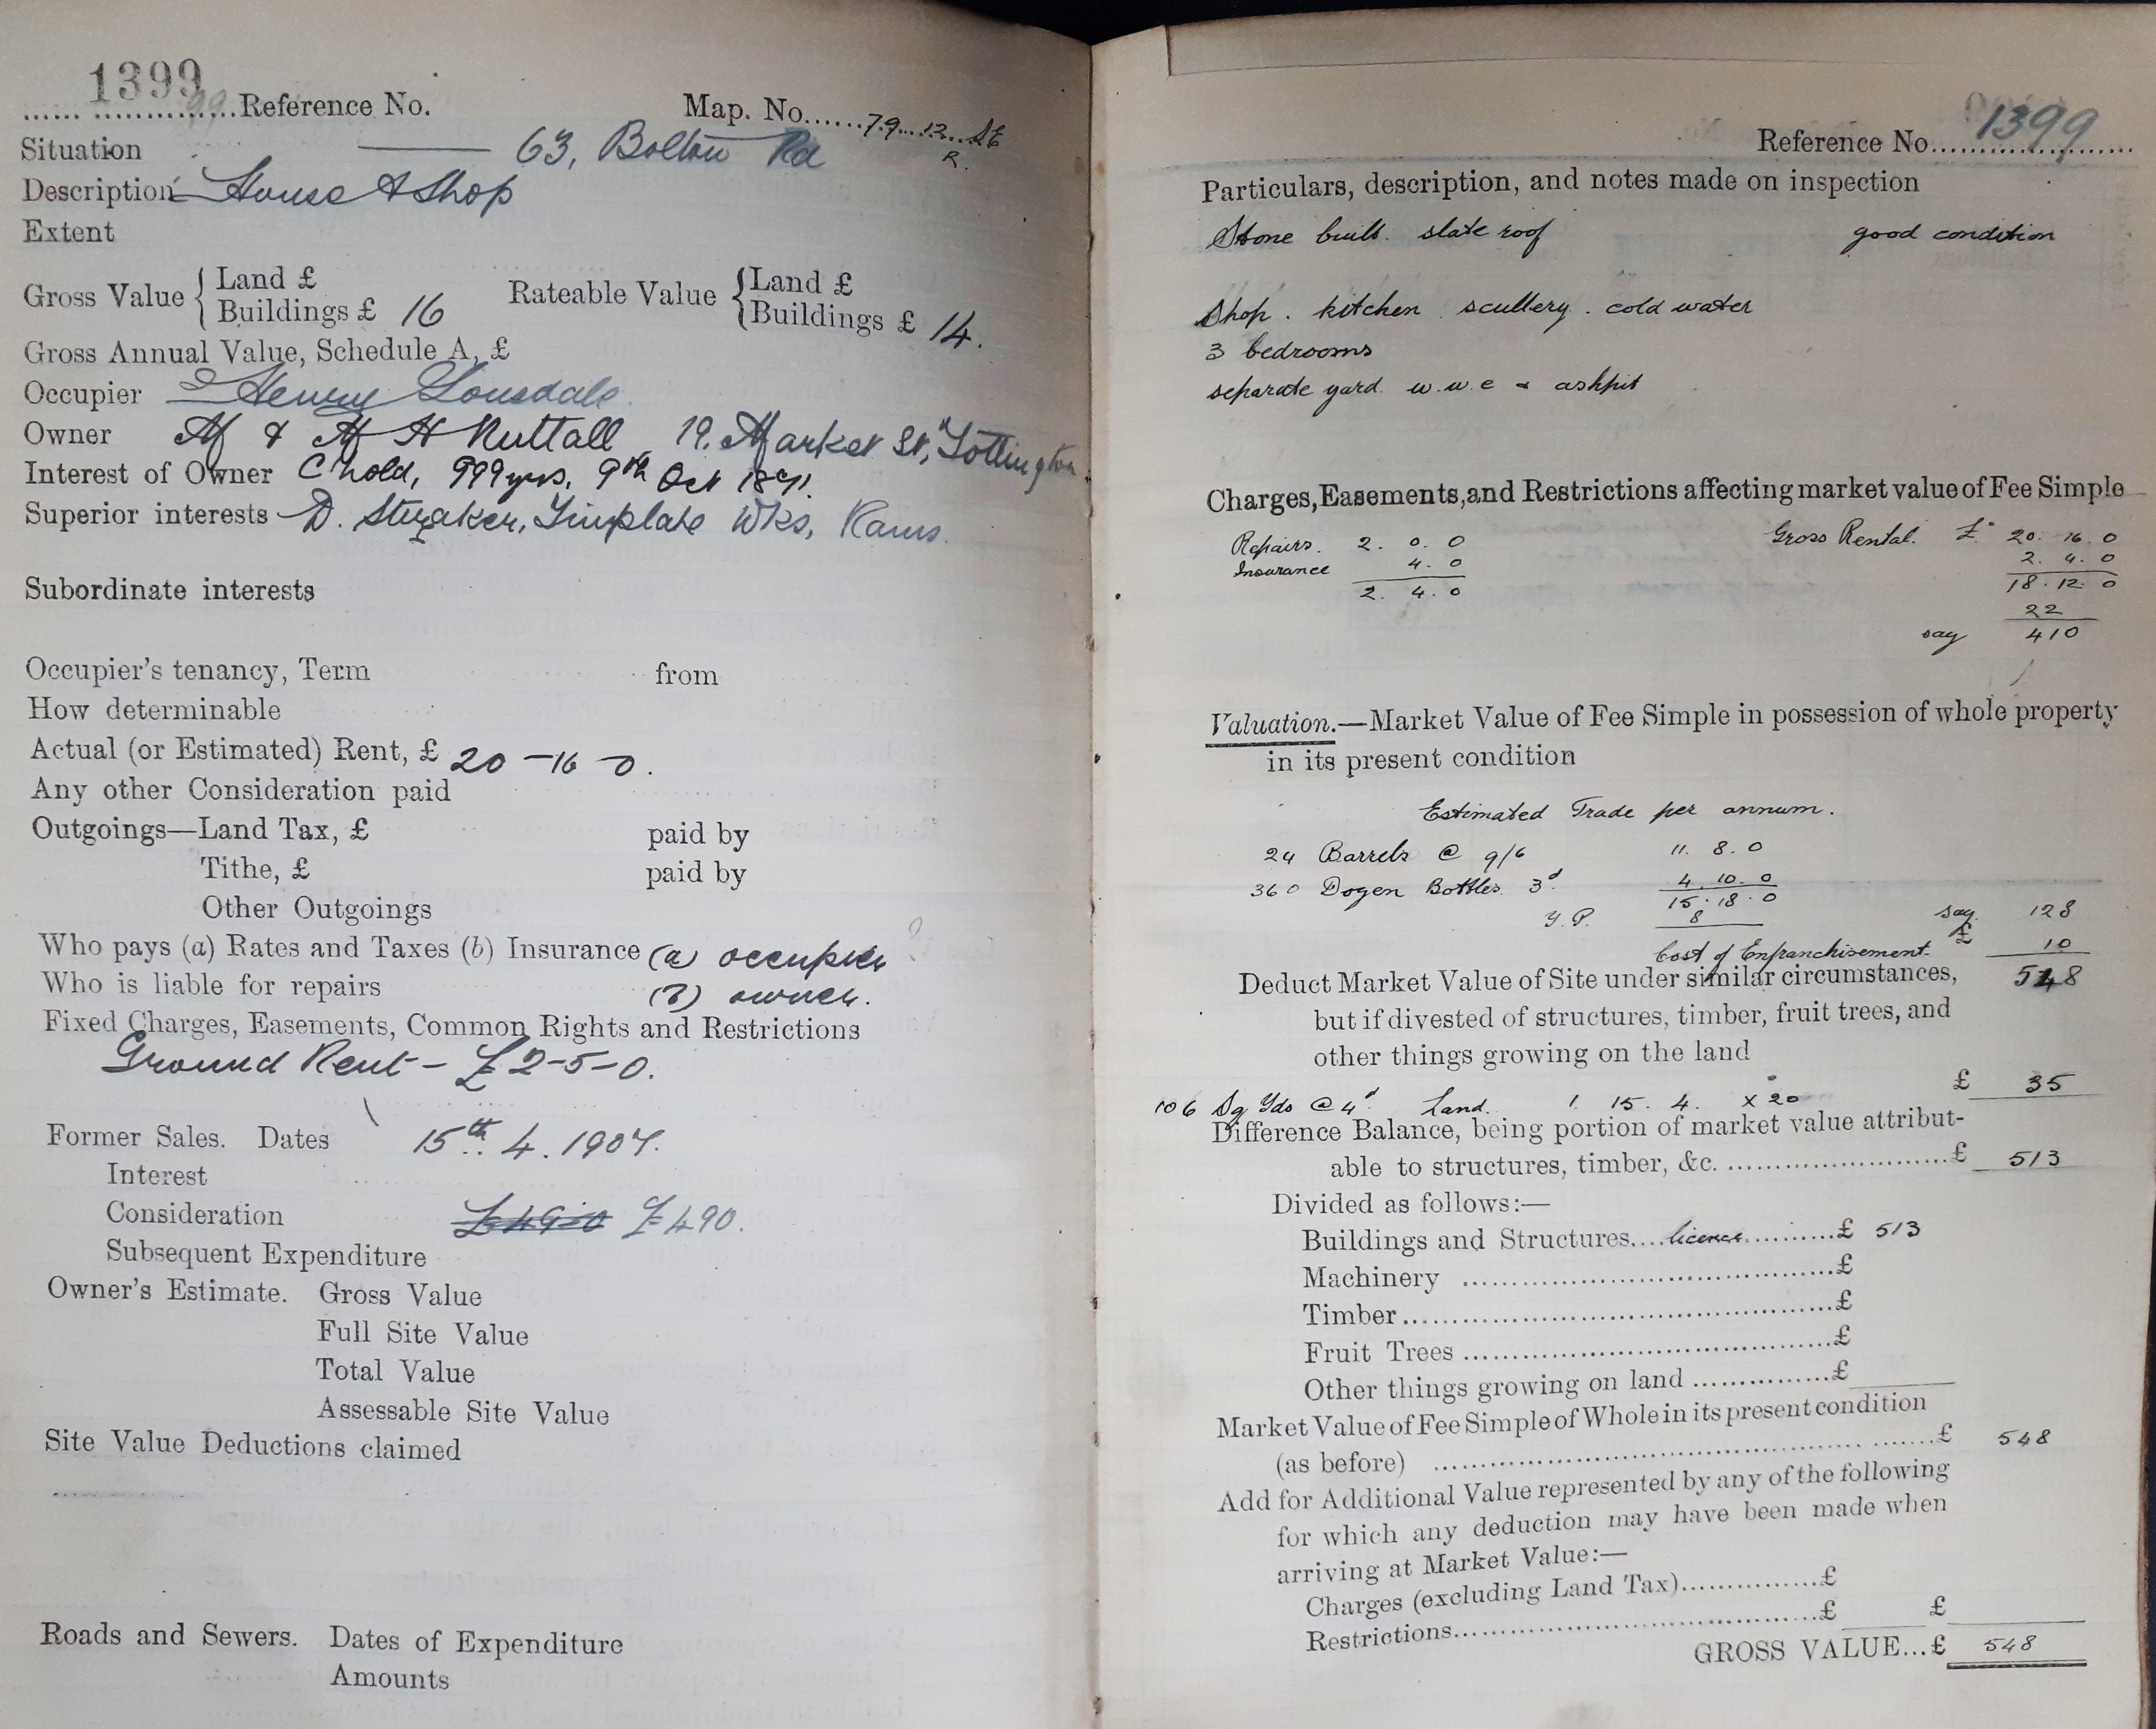 1399
Reference No.
Map. No......79..12..SE
R.
Situation 63, Bolton Rd
Description House & Shop
Extent
Gross Value { Land £
Buildings £ 16
Rateable Value { Land £
Buildings £ 14.
Gross Annual Value, Schedule A, £
Occupier Henry Lonsdale.
Owner M & M H Nuttall, 19, Market St, Tottington
Interest of Owner C'hold, 999 yrs, 9th Oct 1871.
Superior interests D. Straker, Tinplate Wks, Rams.
Subordinate interests
Occupier's tenancy, Term from
How determinable
Actual (or Estimated) Rent, £ 20-16-0.
Any other Consideration paid
Outgoings—Land Tax, £ paid by
Tithe, £ paid by
Other Outgoings
Who pays (a) Rates and Taxes (b) Insurance (a) occupier ?
Who is liable for repairs (b) owner.
Fixed Charges, Easements, Common Rights and Restrictions
Ground Rent - £2-5-0.
Former Sales. Dates 15th. 4. 1907.
Interest
Consideration £490 £490.
Subsequent Expenditure
Owner's Estimate. Gross Value
Full Site Value
Total Value
Assessable Site Value
Site Value Deductions claimed
Roads and Sewers. Dates of Expenditure
Amounts
Reference No. 1399
Particulars, description, and notes made on inspection
Stone built. slate roof good condition
Shop. kitchen. scullery. cold water
3 bedrooms
separate yard. w.w.c & ashpit
Charges, Easements, and Restrictions affecting market value of Fee Simple
Repairs. 2. 0. 0 Gross Rental. £ 20. 16. 0
Insurance 4. 0 2. 4. 0
2. 4. 0 18. 12. 0
22
say 410
Valuation.—Market Value of Fee Simple in possession of whole property
in its present condition
Estimated Trade per annum.
24 Barrels @ 9/6 11. 8. 0
360 Dozen Bottles 3d. 4. 10. 0
15. 18. 0
Y.P. 8 say £ 128
Cost of Enfranchisement. 10
Deduct Market Value of Site under similar circumstances, 548
but if divested of structures, timber, fruit trees, and
other things growing on the land
£ 35
106 Sq Yds @ 4d Land. 1. 15. 4. x 20
Difference Balance, being portion of market value attribut-
able to structures, timber, &c. £ 513
Divided as follows:—
Buildings and Structures....licence..........£ 513
Machinery £
Timber £
Fruit Trees £
Other things growing on land £
Market Value of Fee Simple of Whole in its present condition
(as before) £ 548
Add for Additional Value represented by any of the following
for which any deduction may have been made when
arriving at Market Value:—
Charges (excluding Land Tax) £
Restrictions £ £
GROSS VALUE...£ 548